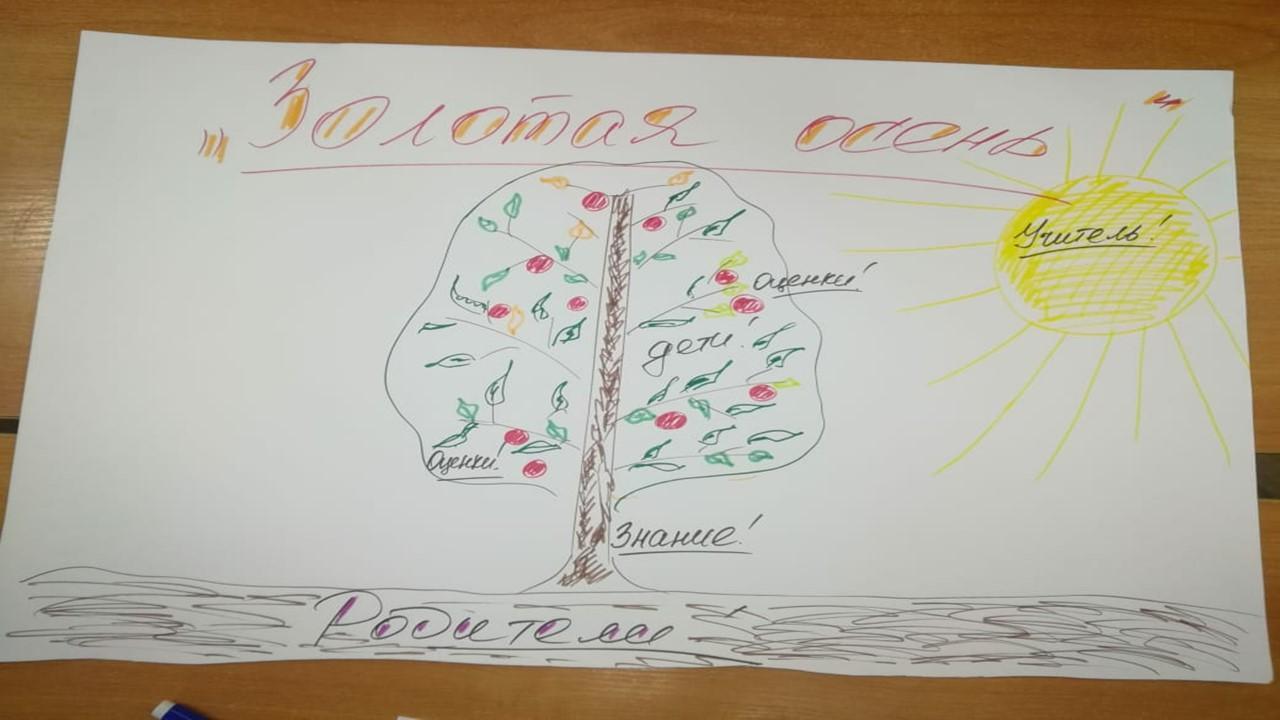 "Золотая осень"
Учитель!
Оценки!
дети!
Оценки!
Знание!
Родители